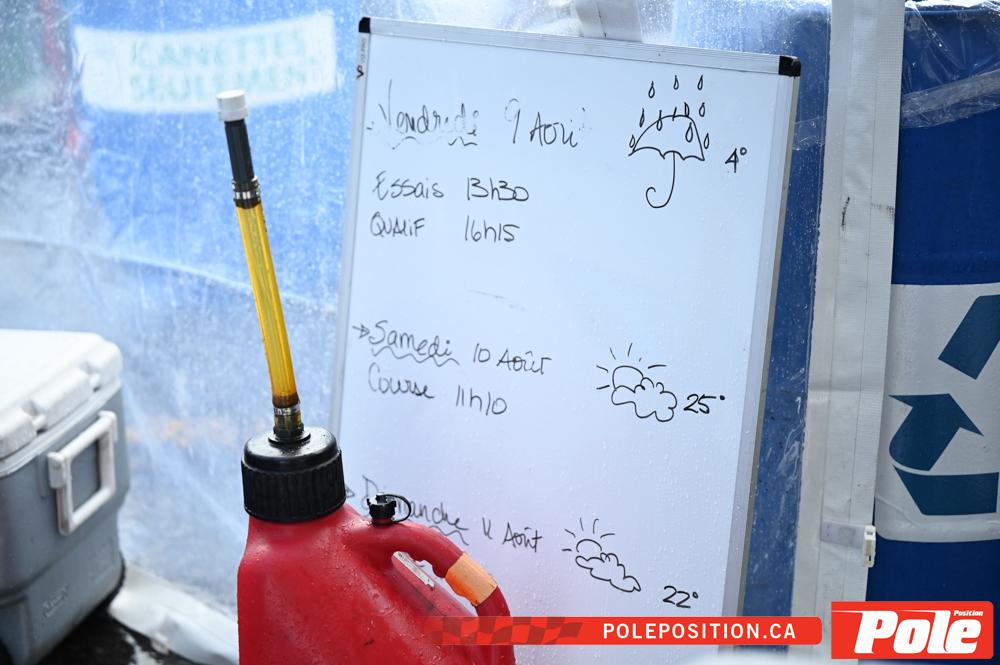 CANETTES
SEULEMENT
Vendredi 9 Aout
4°
Essais 13h30
QUALIF 16h15
Samedi 10 Août
25°
Course 11h10
Dimanche 11 Août
22°
POLEPOSITION.CA
Pole Position